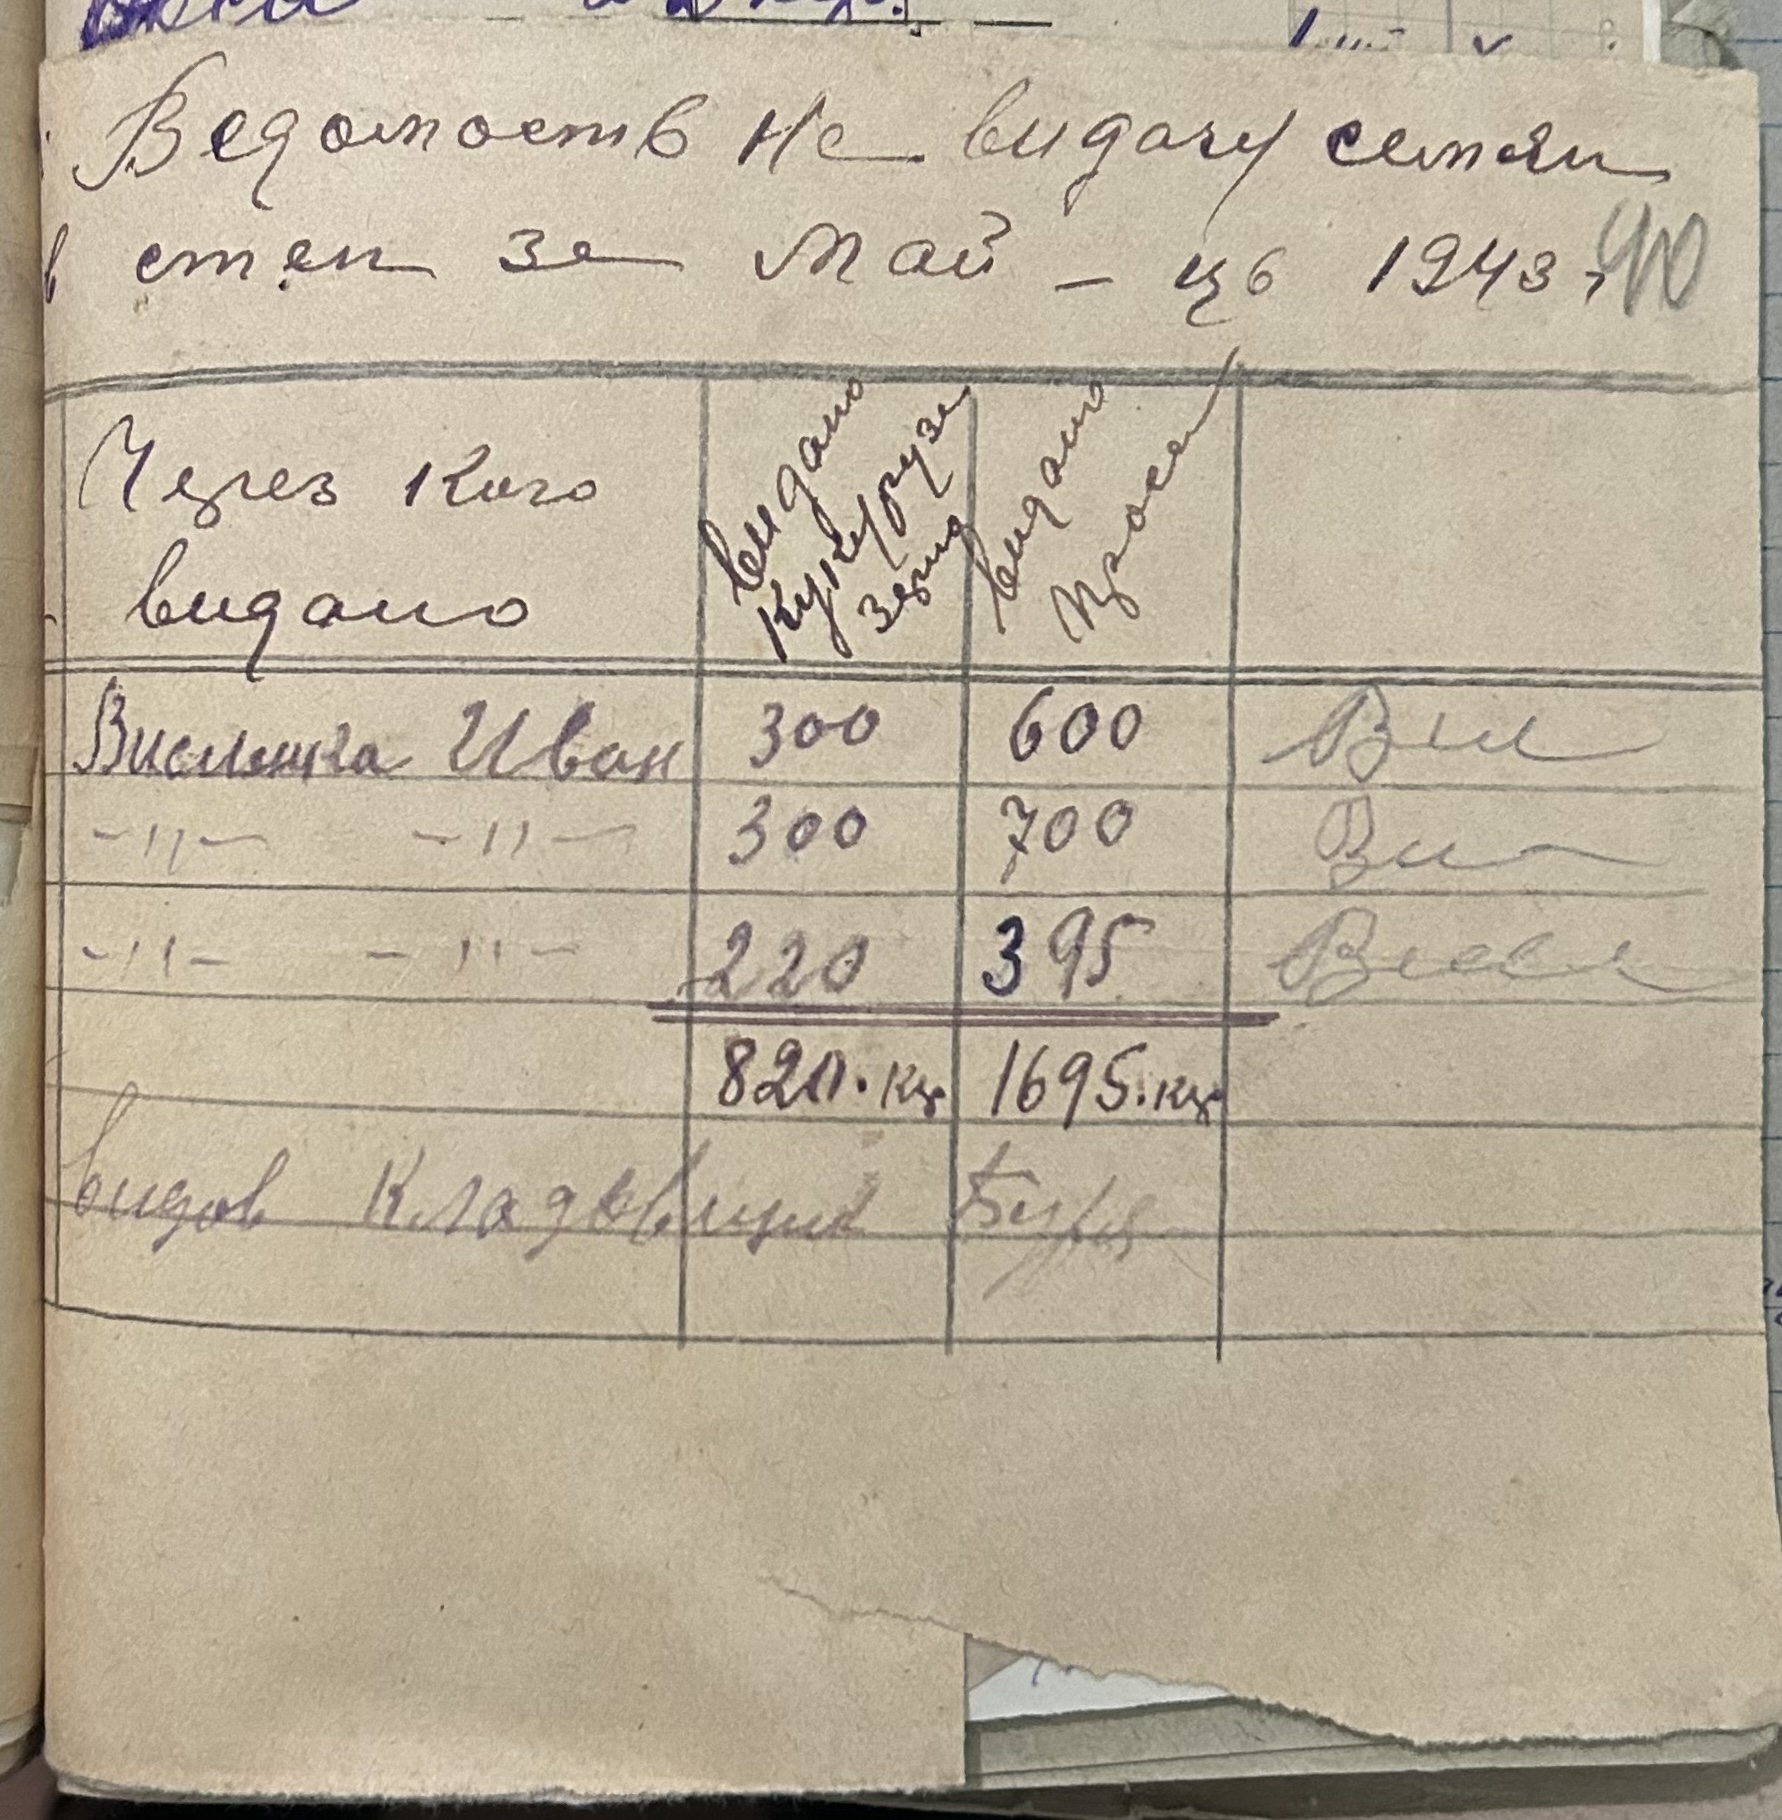 Ведомость на видачу семян
в степ за май - ць 1943 г
40
Через кого
видано
видано
кукурузи
зерна
видано
проса
Вислинка Иван 300 600 Вис
-"- -"- 300 700 Вис
-"- -"- 220 395 Висл
820. кг 1695. кг
видав Кладовщик